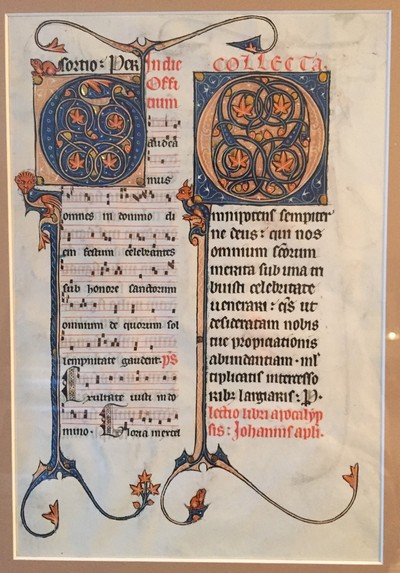 sortio: Per
In die
Offi
tium
Gaudea
mus
omnes in domino di
em festum celebrantes
sub honore sanctorum
omnium de quorum sol
lempnitate gaudent. ps
Exultate iusti in do
mino. Gloria
COLLECTA.
Omnipotens sempiter
ne deus: qui nos
omnium scorum
merita sub una tri
buisti celebritate
venerari: ut
desideratam nobis
tue propiciationis
abundantiam. ml
tiplicatis intercesso
ribz largiaris: P.
lectio libri apocalyp
sis: Johannis apli.